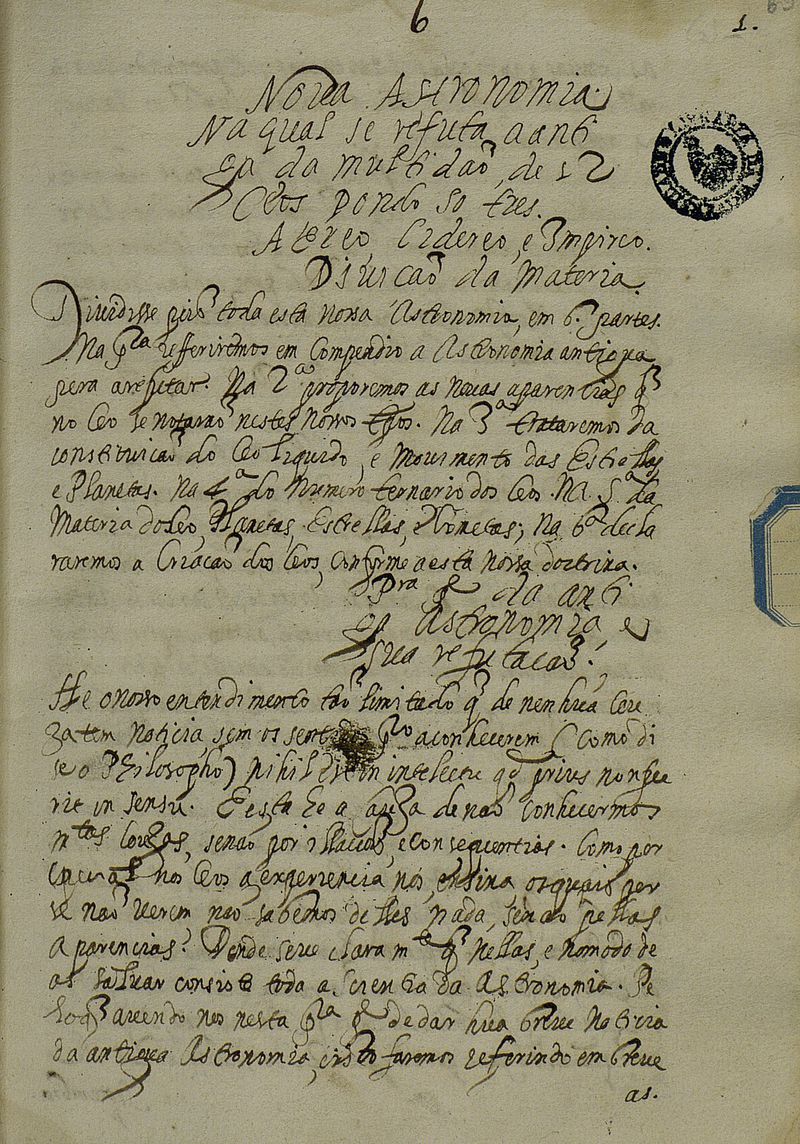 6
1.
Nova Astronomia
Na qual se refuta a anti
ga da multidaõ, de 12
Ceos pondo so tres.
Aereo Cidereo, e Impireo.
Diuicaõ da Materia.
Diuidisse pois toda esta nossa Astronomia, em 6. partes.
Na pra. refferiremos em Compendio a Astronomia antigua
pera a refutar. Na 2.a proporemos as nouas aparentias q̃
no Ceo se notaraõ nestes nossos tpos. Na 3.a trataremos da
constituicaõ do Ceo liquido, e mouimento das Estrellas
e Planetas. Na 4.a do numero ternario dos Ceos. Na 5.a da
Materia do Ceo, Planetas, Estrellas, e Cometas; na 6.a decla
raremos a Criacaõ dos Ceos, conforme a esta nossa doctrina.
Pra p.e da anti
ga Astronomia, e
sua refutacaõ.
He o nosso entendimento taõ limitado q̃ de nenhũa Cou
za tem noticia, sem os sentidos pro a conhecerem (como di
se o Philosopho) nihil est in intelectu qd prius non fue
rit in sensu. E esta he a cauza de naõ conhecermos
mtas couzas, senaõ por illacoẽs, e consequentias. Como por
nos Ceos a experiencia nos ensina os quais por
se naõ uerem naõ sabemos delles nada, senaõ pellas
aparencias. Donde se ue claramte q̃ nellas, e no modo de
as saluar consiste toda a Scientia da Astronomia. Pe
lo q̃ auendo nos nesta pra pe de dar hũa breue noticia
da antigua Astronomia, isto faremos referindo em breue
as.